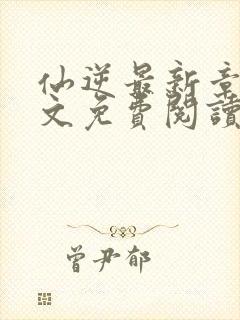 仙逆最新章
文免費閱讀
曾尹郁